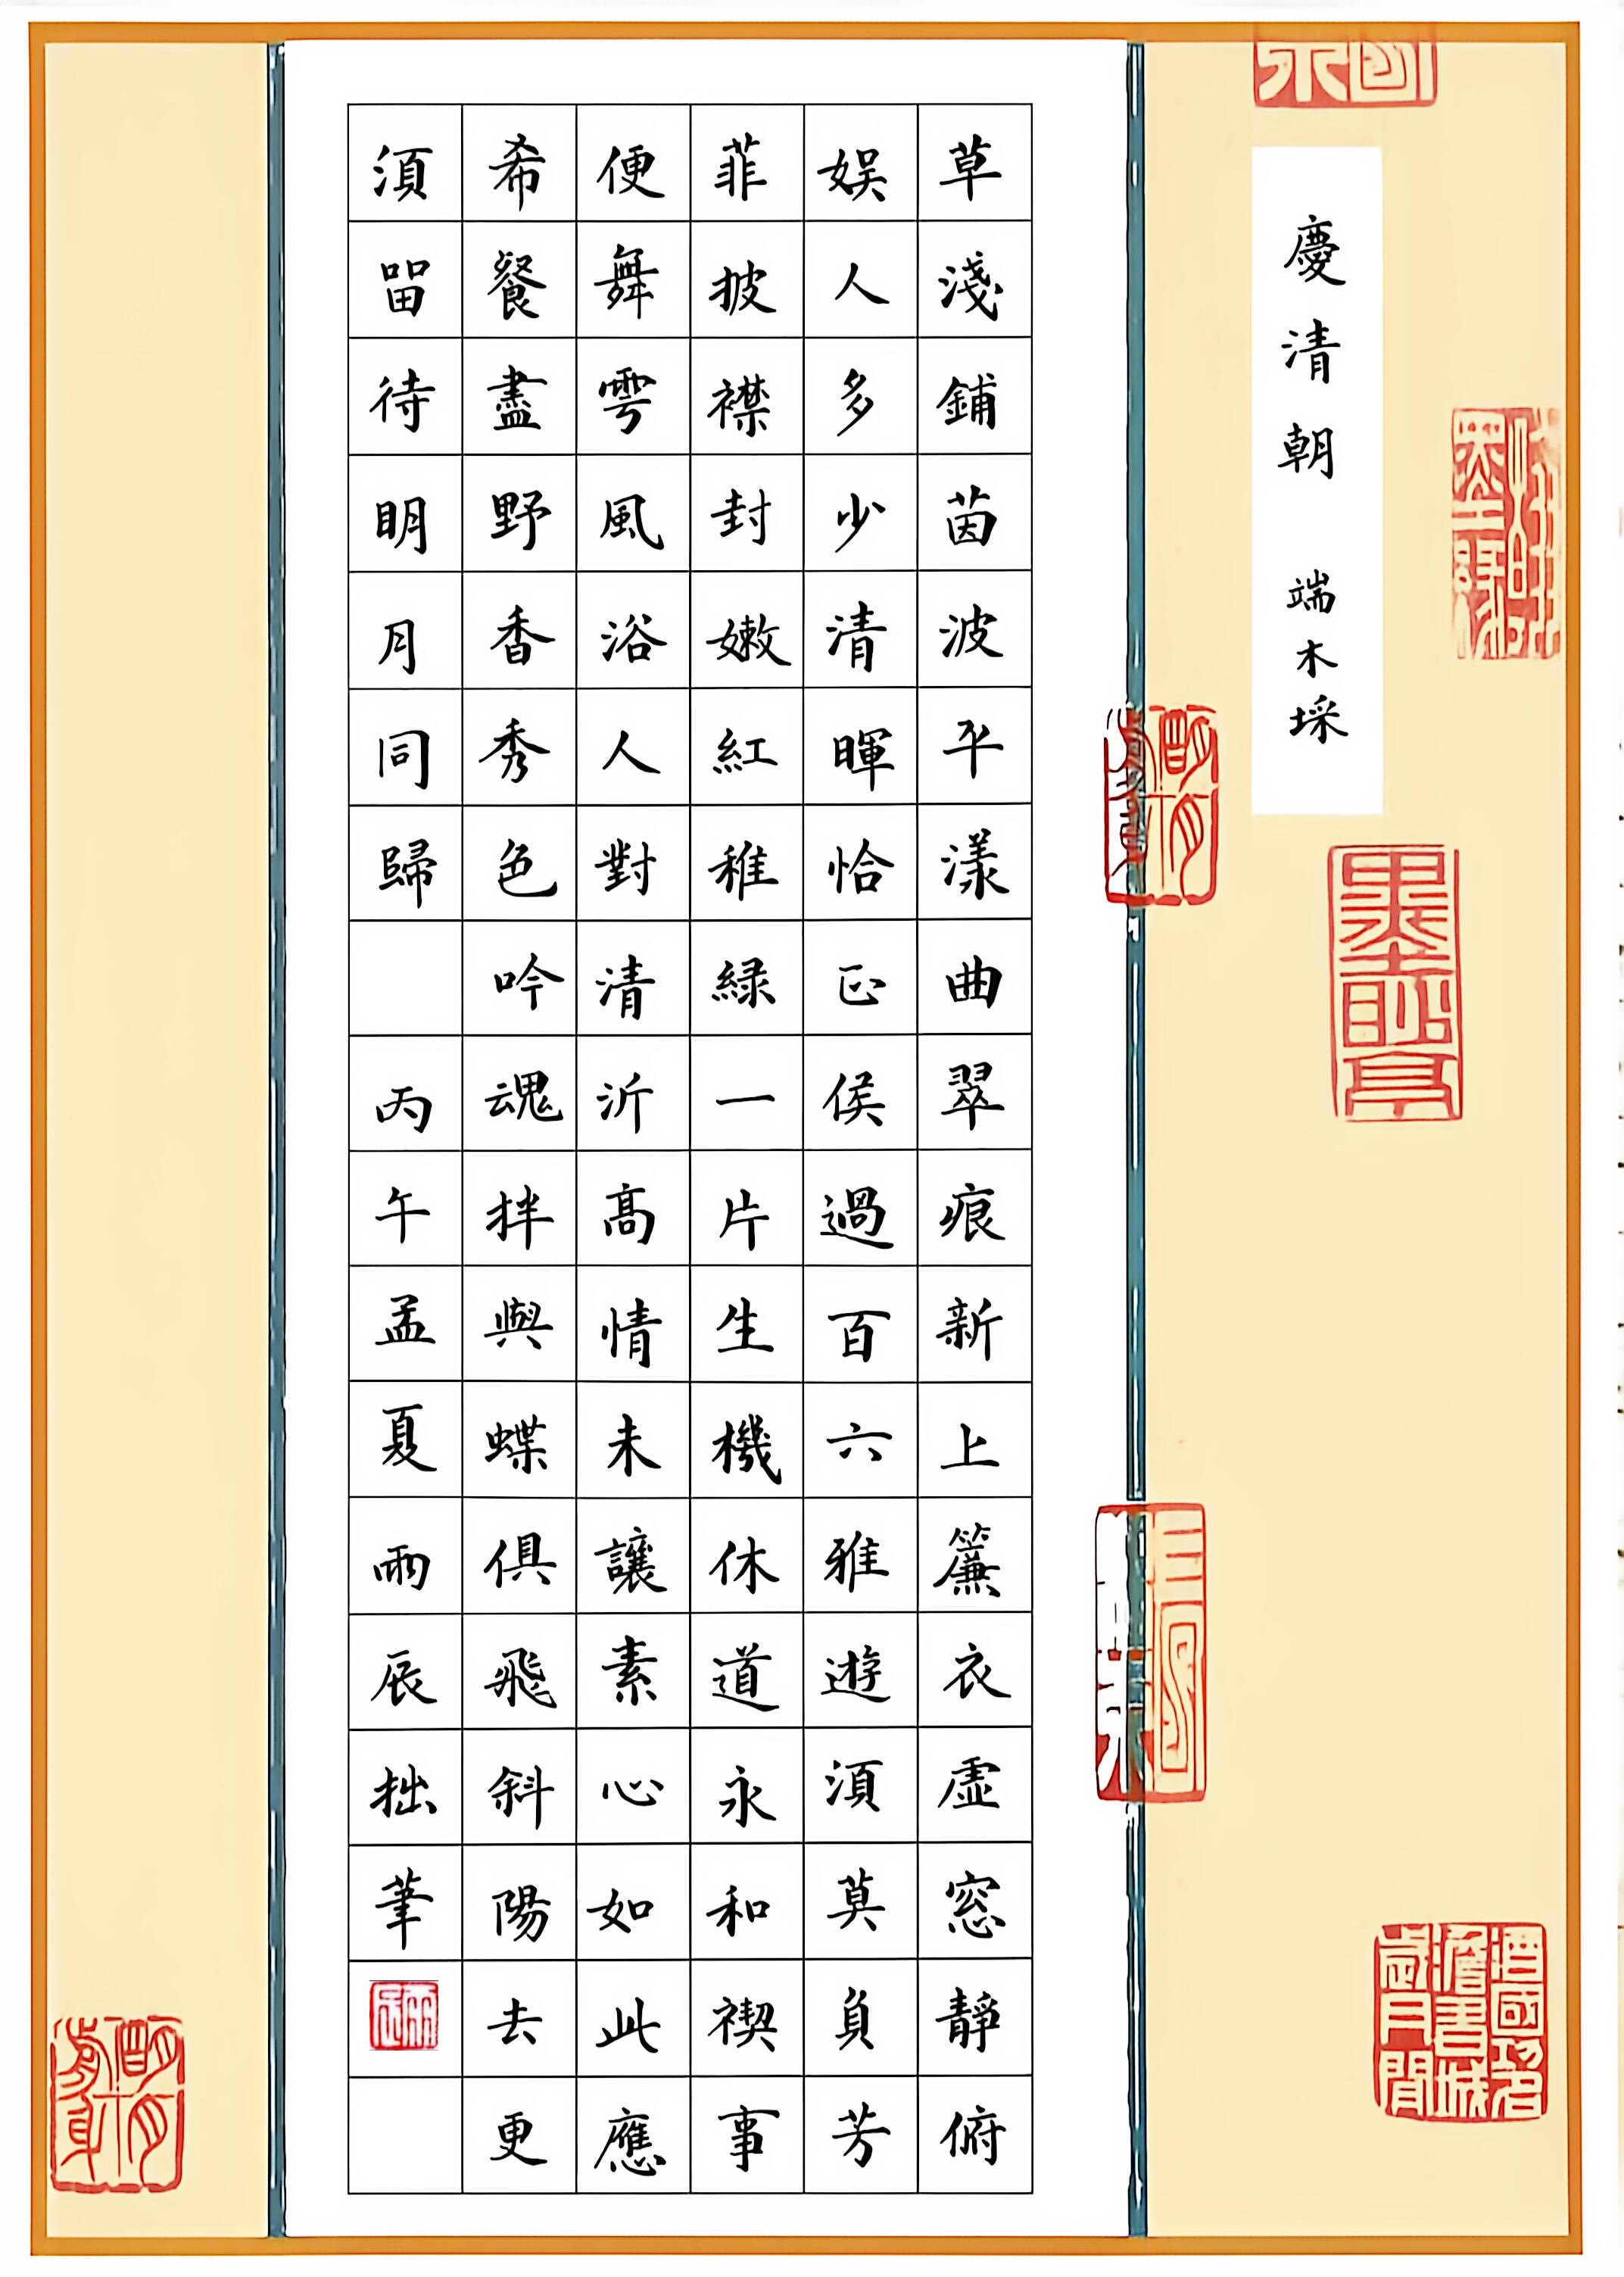 慶清朝 端木埰
草淺鋪茵波平漾曲翠痕新上簾衣虛窓靜俯
娛人多少清暉恰正侯過百六雅遊須莫負芳
菲披襟封嫩紅稚緑一片生機休道永和禊事
便舞雩風浴人對清沂高情未讓素心如此應
希餐盡野香秀色吟魂拌與蝶俱飛斜陽去更
須留待明月同歸 丙午孟夏雨辰拙筆